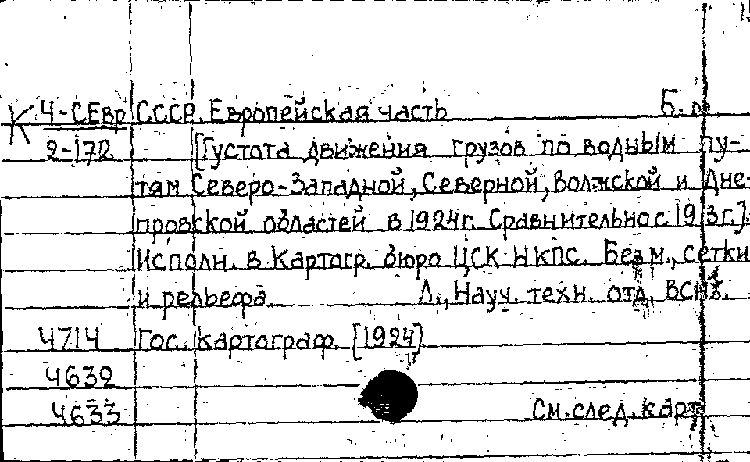 К 4-СЕвр СССР. Европейская часть Б. м.
2-172 [Густота движения грузов по водным пу-
тям Северо-Западной, Северной, Волжской и Дне-
провской областей в 1924г. Сравнительно с 1913г.].
Исполн. в Картогр. бюро ЦСК НКПС. Без м., сетки
и рельефа. Л., Науч. техн. отд. ВСНХ.
4714 Гос. картограф. [1924]
4632
4633 См. след. карт.